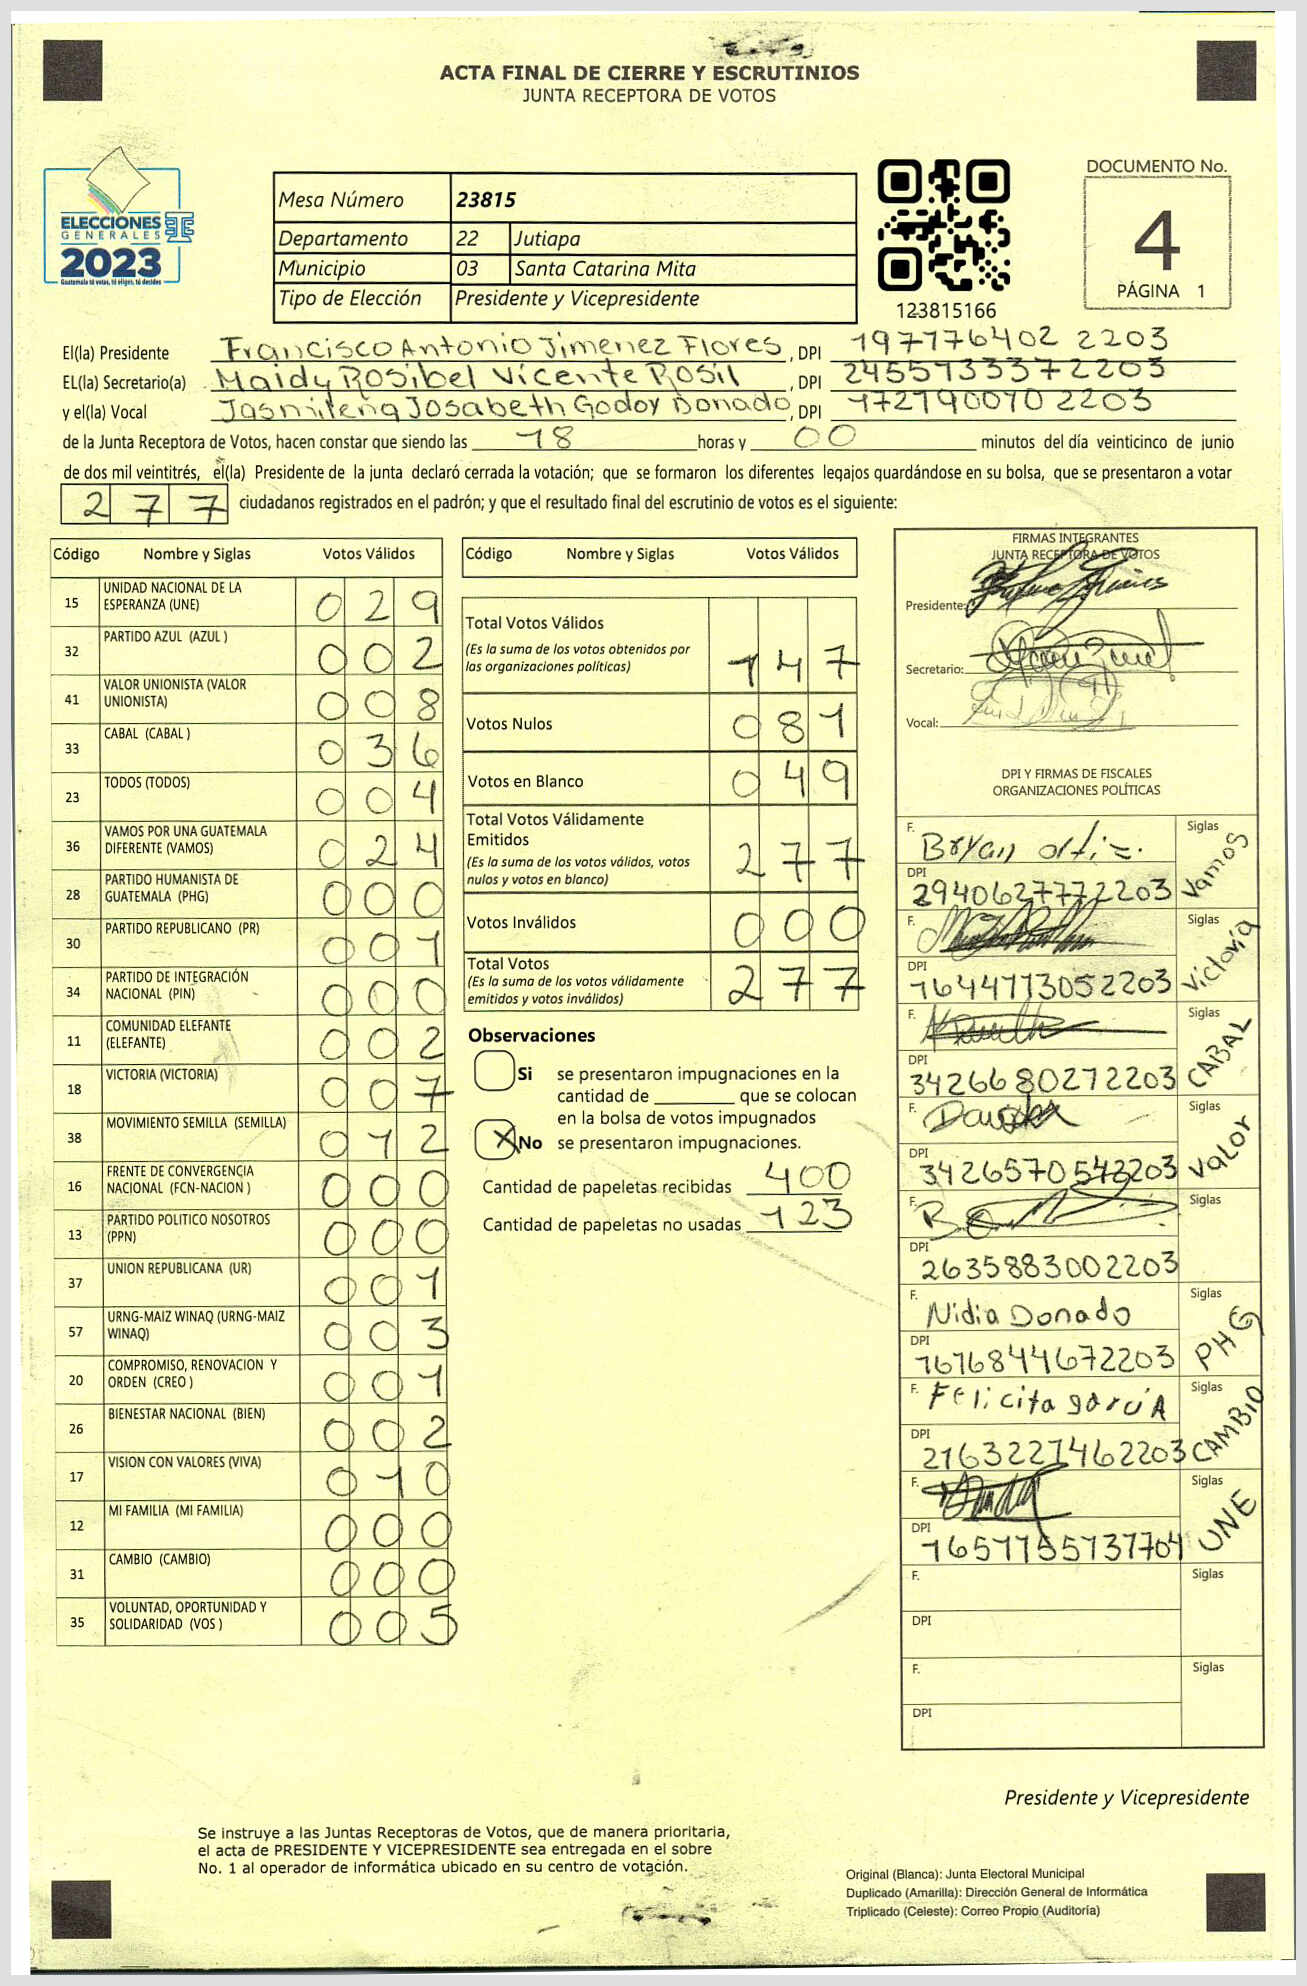 ACTA FINAL DE CIERRE Y ESCRUTINIOS
JUNTA RECEPTORA DE VOTOS
ELECCIONES
GENERALES
2023
Guatemala tú votas, tú eliges, tú decides
Mesa Número 23815
Departamento 22 Jutiapa
Municipio 03 Santa Catarina Mita
Tipo de Elección Presidente y Vicepresidente
123815166
DOCUMENTO No.
4
PÁGINA 1
El(la) Presidente Francisco Antonio Jimenez Flores, DPI 197776402 2203
EL(la) Secretario(a) Maidy Rosibel Vicente Rosil, DPI 2455733372203
y el(la) Vocal Josabeth Godoy Donado, DPI 172190070 2203
de la Junta Receptora de Votos, hacen constar que siendo las 18 horas y 00 minutos del día veinticinco de junio
de dos mil veintitrés, el(la) Presidente de la junta declaró cerrada la votación; que se formaron los diferentes legajos guardándose en su bolsa, que se presentaron a votar
277 ciudadanos registrados en el padrón; y que el resultado final del escrutinio de votos es el siguiente:
Código Nombre y Siglas Votos Válidos
15 UNIDAD NACIONAL DE LA ESPERANZA (UNE) 029
32 PARTIDO AZUL (AZUL ) 002
41 VALOR UNIONISTA (VALOR UNIONISTA) 008
33 CABAL (CABAL ) 036
23 TODOS (TODOS) 004
36 VAMOS POR UNA GUATEMALA DIFERENTE (VAMOS) 024
28 PARTIDO HUMANISTA DE GUATEMALA (PHG) 000
30 PARTIDO REPUBLICANO (PR) 001
34 PARTIDO DE INTEGRACIÓN NACIONAL (PIN) 000
11 COMUNIDAD ELEFANTE (ELEFANTE) 002
18 VICTORIA (VICTORIA) 007
38 MOVIMIENTO SEMILLA (SEMILLA) 012
16 FRENTE DE CONVERGENCIA NACIONAL (FCN-NACION ) 000
13 PARTIDO POLITICO NOSOTROS (PPN) 000
37 UNION REPUBLICANA (UR) 001
57 URNG-MAIZ WINAQ (URNG-MAIZ WINAQ) 003
20 COMPROMISO, RENOVACION Y ORDEN (CREO ) 001
26 BIENESTAR NACIONAL (BIEN) 002
17 VISION CON VALORES (VIVA) 010
12 MI FAMILIA (MI FAMILIA) 000
31 CAMBIO (CAMBIO) 000
35 VOLUNTAD, OPORTUNIDAD Y SOLIDARIDAD (VOS ) 005
Código Nombre y Siglas Votos Válidos
Total Votos Válidos 147
(Es la suma de los votos obtenidos por
las organizaciones políticas)
Votos Nulos 081
Votos en Blanco 049
Total Votos Válidamente
Emitidos 277
(Es la suma de los votos válidos, votos
nulos y votos en blanco)
Votos Inválidos 000
Total Votos 277
(Es la suma de los votos válidamente
emitidos y votos inválidos)
Observaciones
Si se presentaron impugnaciones en la
cantidad de ________ que se colocan
en la bolsa de votos impugnados
X No se presentaron impugnaciones.
Cantidad de papeletas recibidas 400
Cantidad de papeletas no usadas 123
FIRMAS INTEGRANTES
JUNTA RECEPTORA DE VOTOS
Presidente:
Secretario:
Vocal:
DPI Y FIRMAS DE FISCALES
ORGANIZACIONES POLÍTICAS
F. Bryan Ortiz. Siglas Vamos
DPI 2940627772203
F. Siglas Victoria
DPI 1644773052203
F. Siglas CABAL
DPI 3426680272203
F. Siglas Valor
DPI 3426570542203
F. Siglas
DPI 2635883002203
F. Nidia Donado Siglas PHG
DPI 1616844672203
F. Felicita García Siglas CAMBIO
DPI 2163227462203
F. Siglas UNE
DPI
F. Siglas
DPI
F. Siglas
DPI
Presidente y Vicepresidente
Se instruye a las Juntas Receptoras de Votos, que de manera prioritaria,
el acta de PRESIDENTE Y VICEPRESIDENTE sea entregada en el sobre
No. 1 al operador de informática ubicado en su centro de votación.
Original (Blanca): Junta Electoral Municipal
Duplicado (Amarilla): Dirección General de Informática
Triplicado (Celeste): Correo Propio (Auditoría)